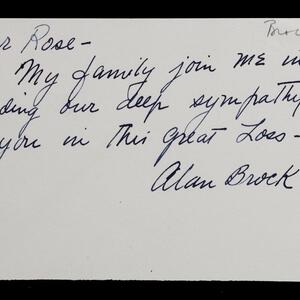 Broc
r Rose-
My family join me in
ding our deep sympathy
you in this great Loss-
Alan Brock